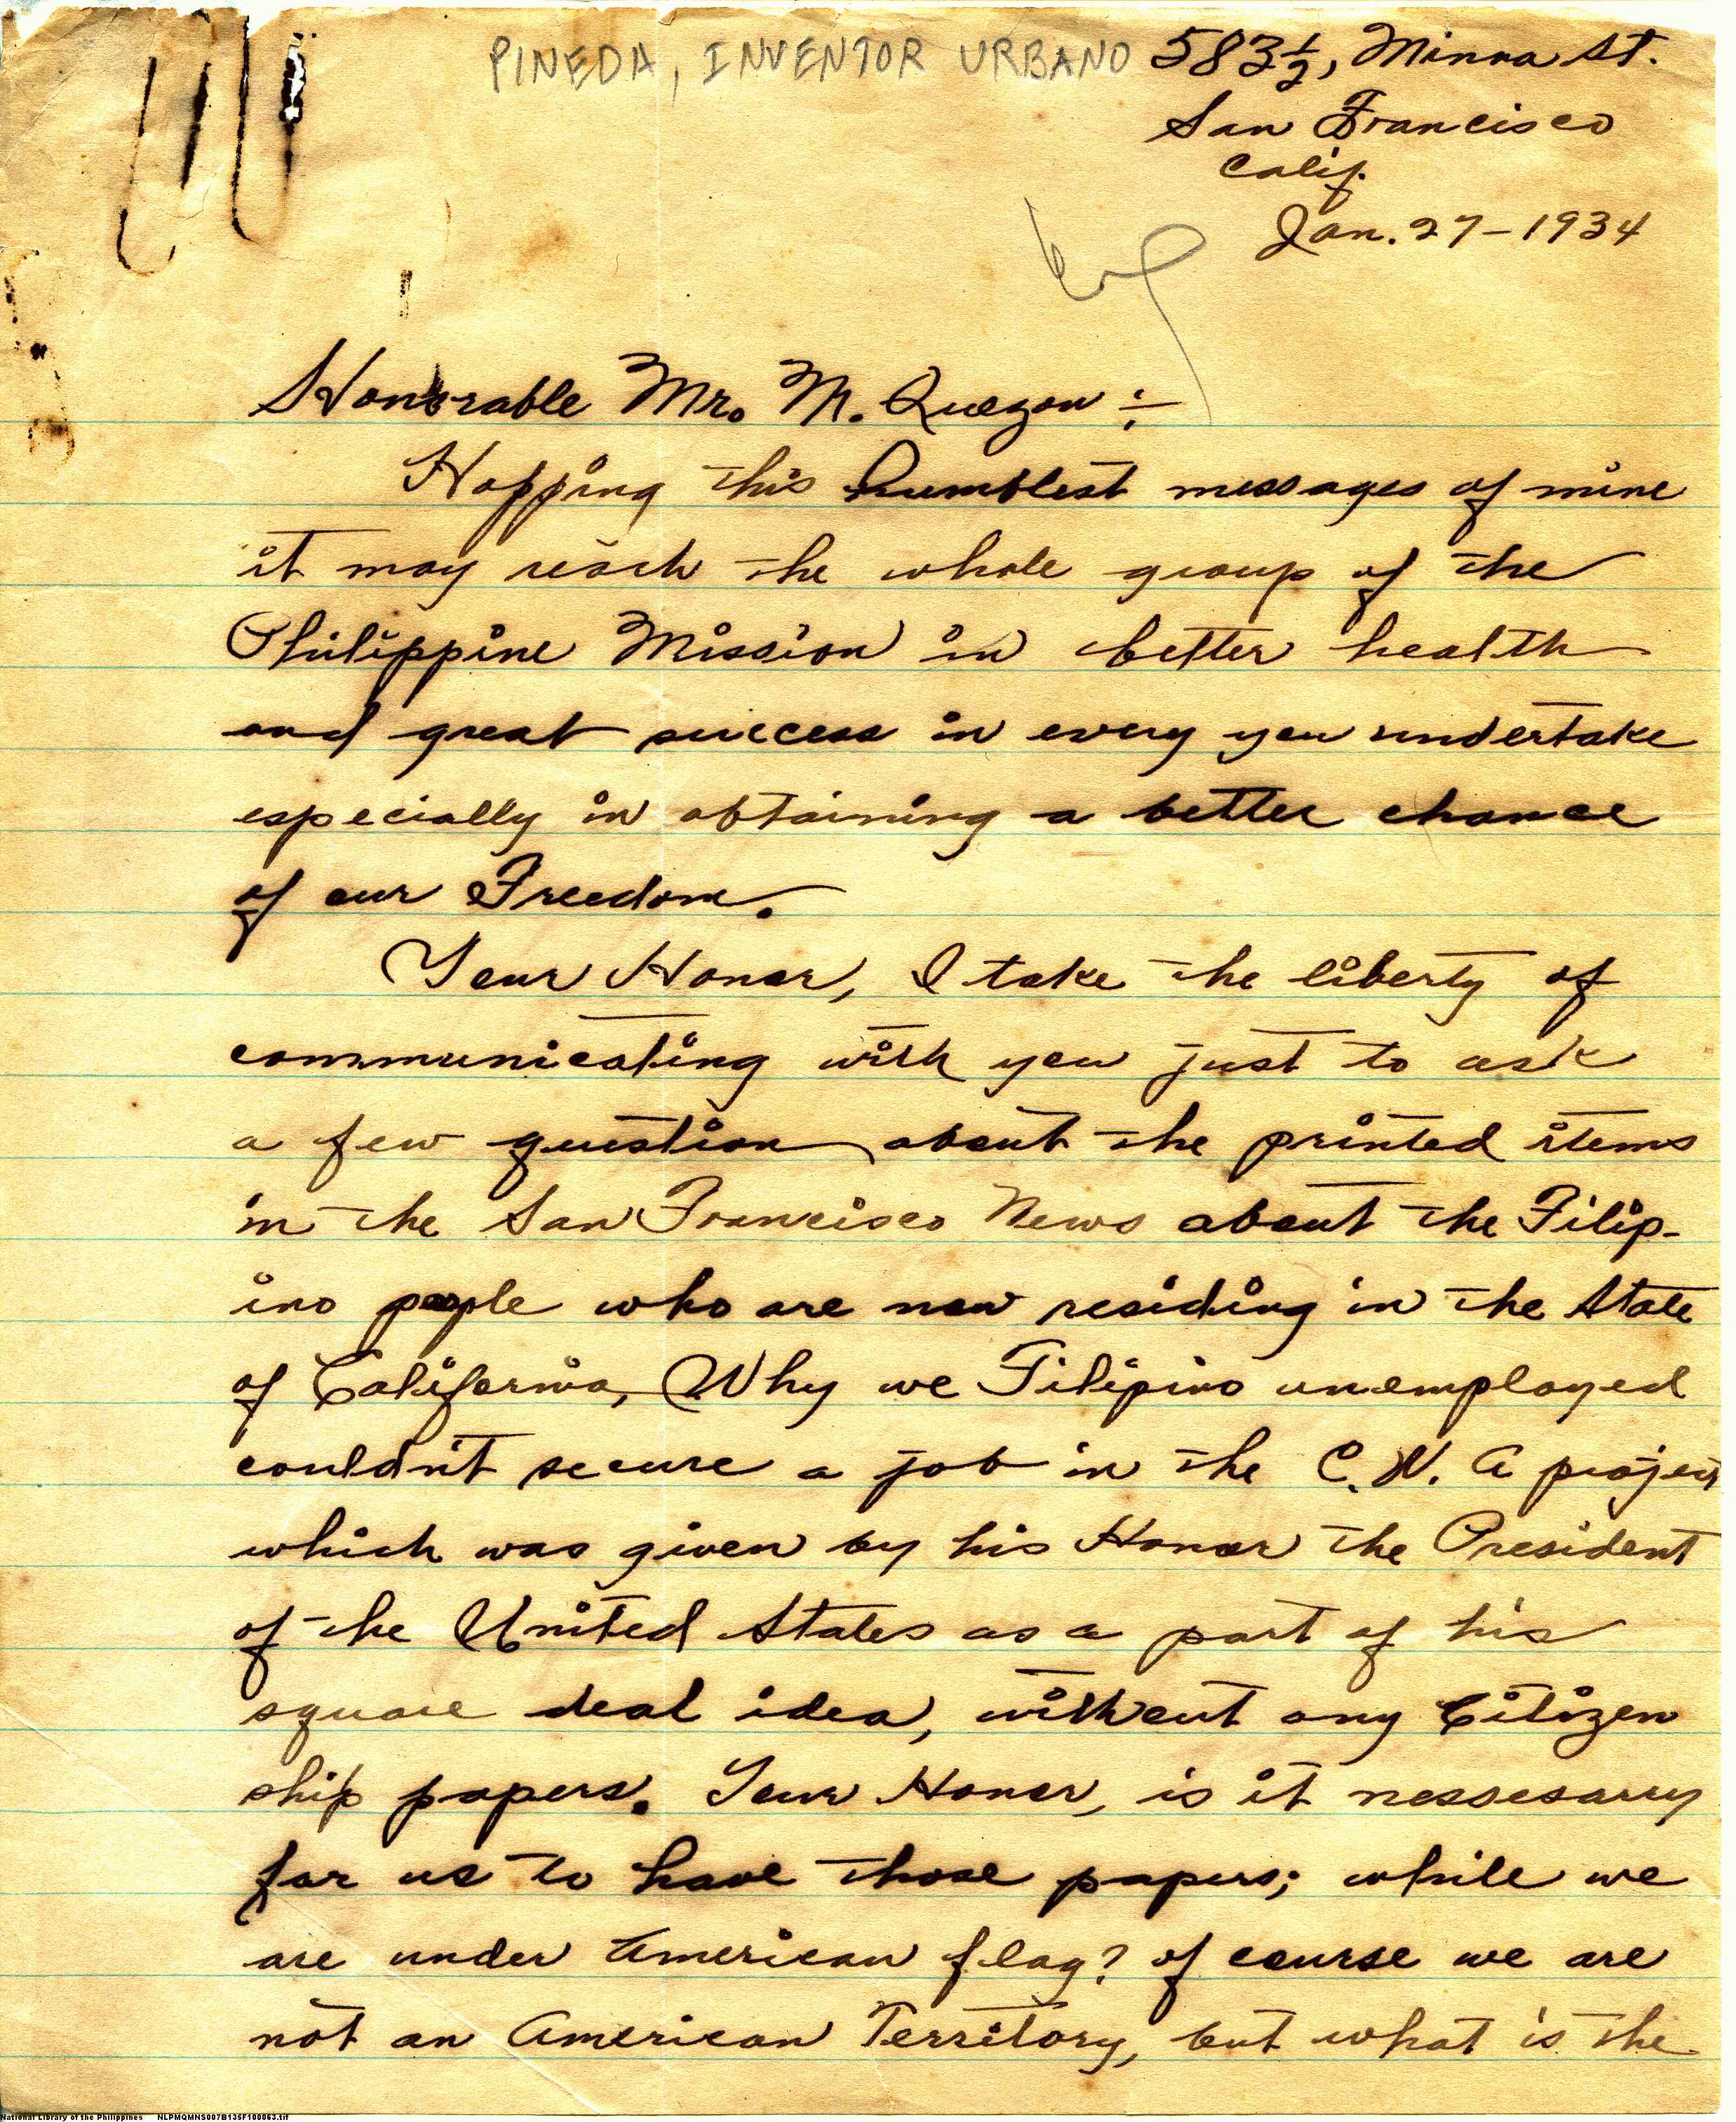 PINEDA, INVENTOR URBANO
583½, Minna St.
San Francisco
Calif.
Jan. 27-1934
Honorable Mr. M. Quezon:-
Hopping this humblest messages of mine
it may reach the whole group of the
Philippine Mission in better health
and great success in every you undertake
especially in obtaining a better chance
of our Freedom.
Your Honor, I take the liberty of
communicating with you just to ask
a few question about the printed items
in the San Francisco News about the Filip-
ino people who are now residing in the State
of California, Why we Filipino unemployed
couldn't secure a job in the C. W. A project
which was given by his Honor the President
of the United States as a part of his
square deal idea, without any Citizen
ship papers. Your Honor, is it nessesarry
for us to have those papers; while we
are under American flag? of course we are
not an American Territory, but what is the
National Library of the Philippines NLPMQMNS007B135F100063.tif